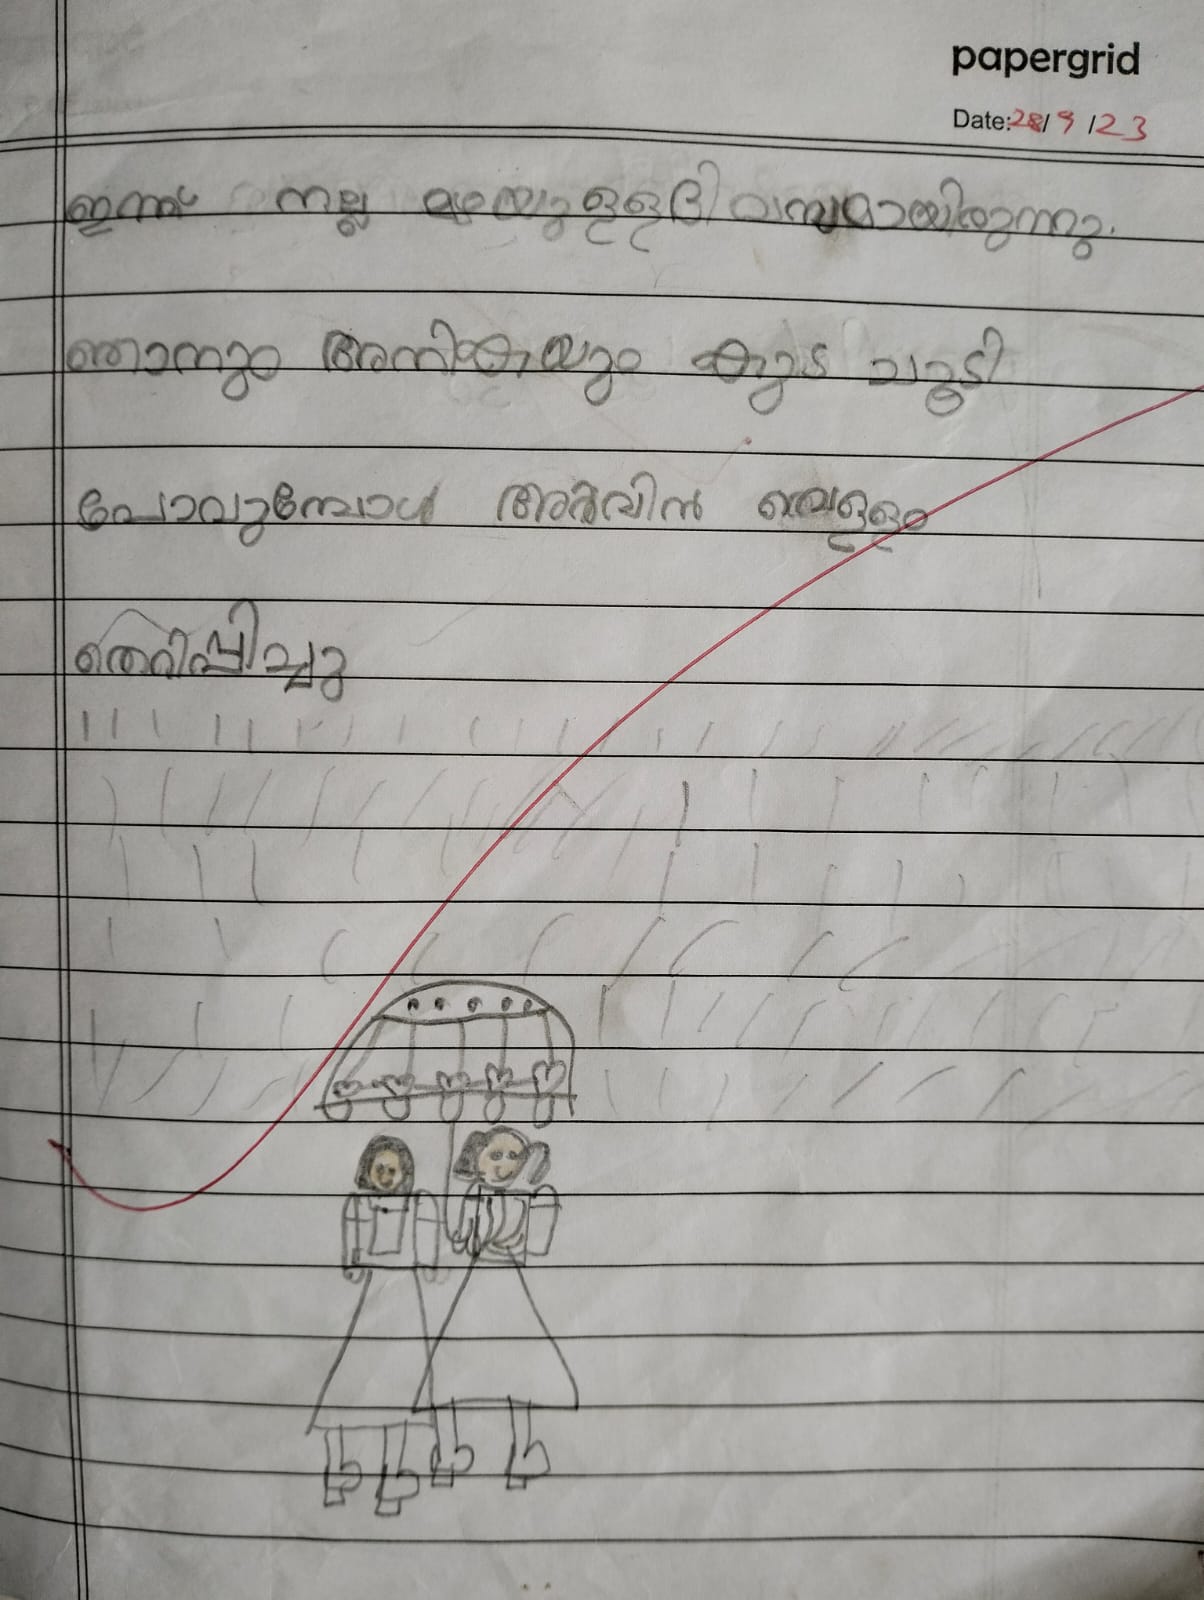 papergrid
Date:28/9/23
ഇന്ന് നല്ല മഴയുള്ള ദിവസമായിരുന്നു.
ഞാനും അനികയും കുട ചൂടി
പോവുമ്പോൾ അർവിൻ വെള്ളം
തെറിപ്പിച്ചു